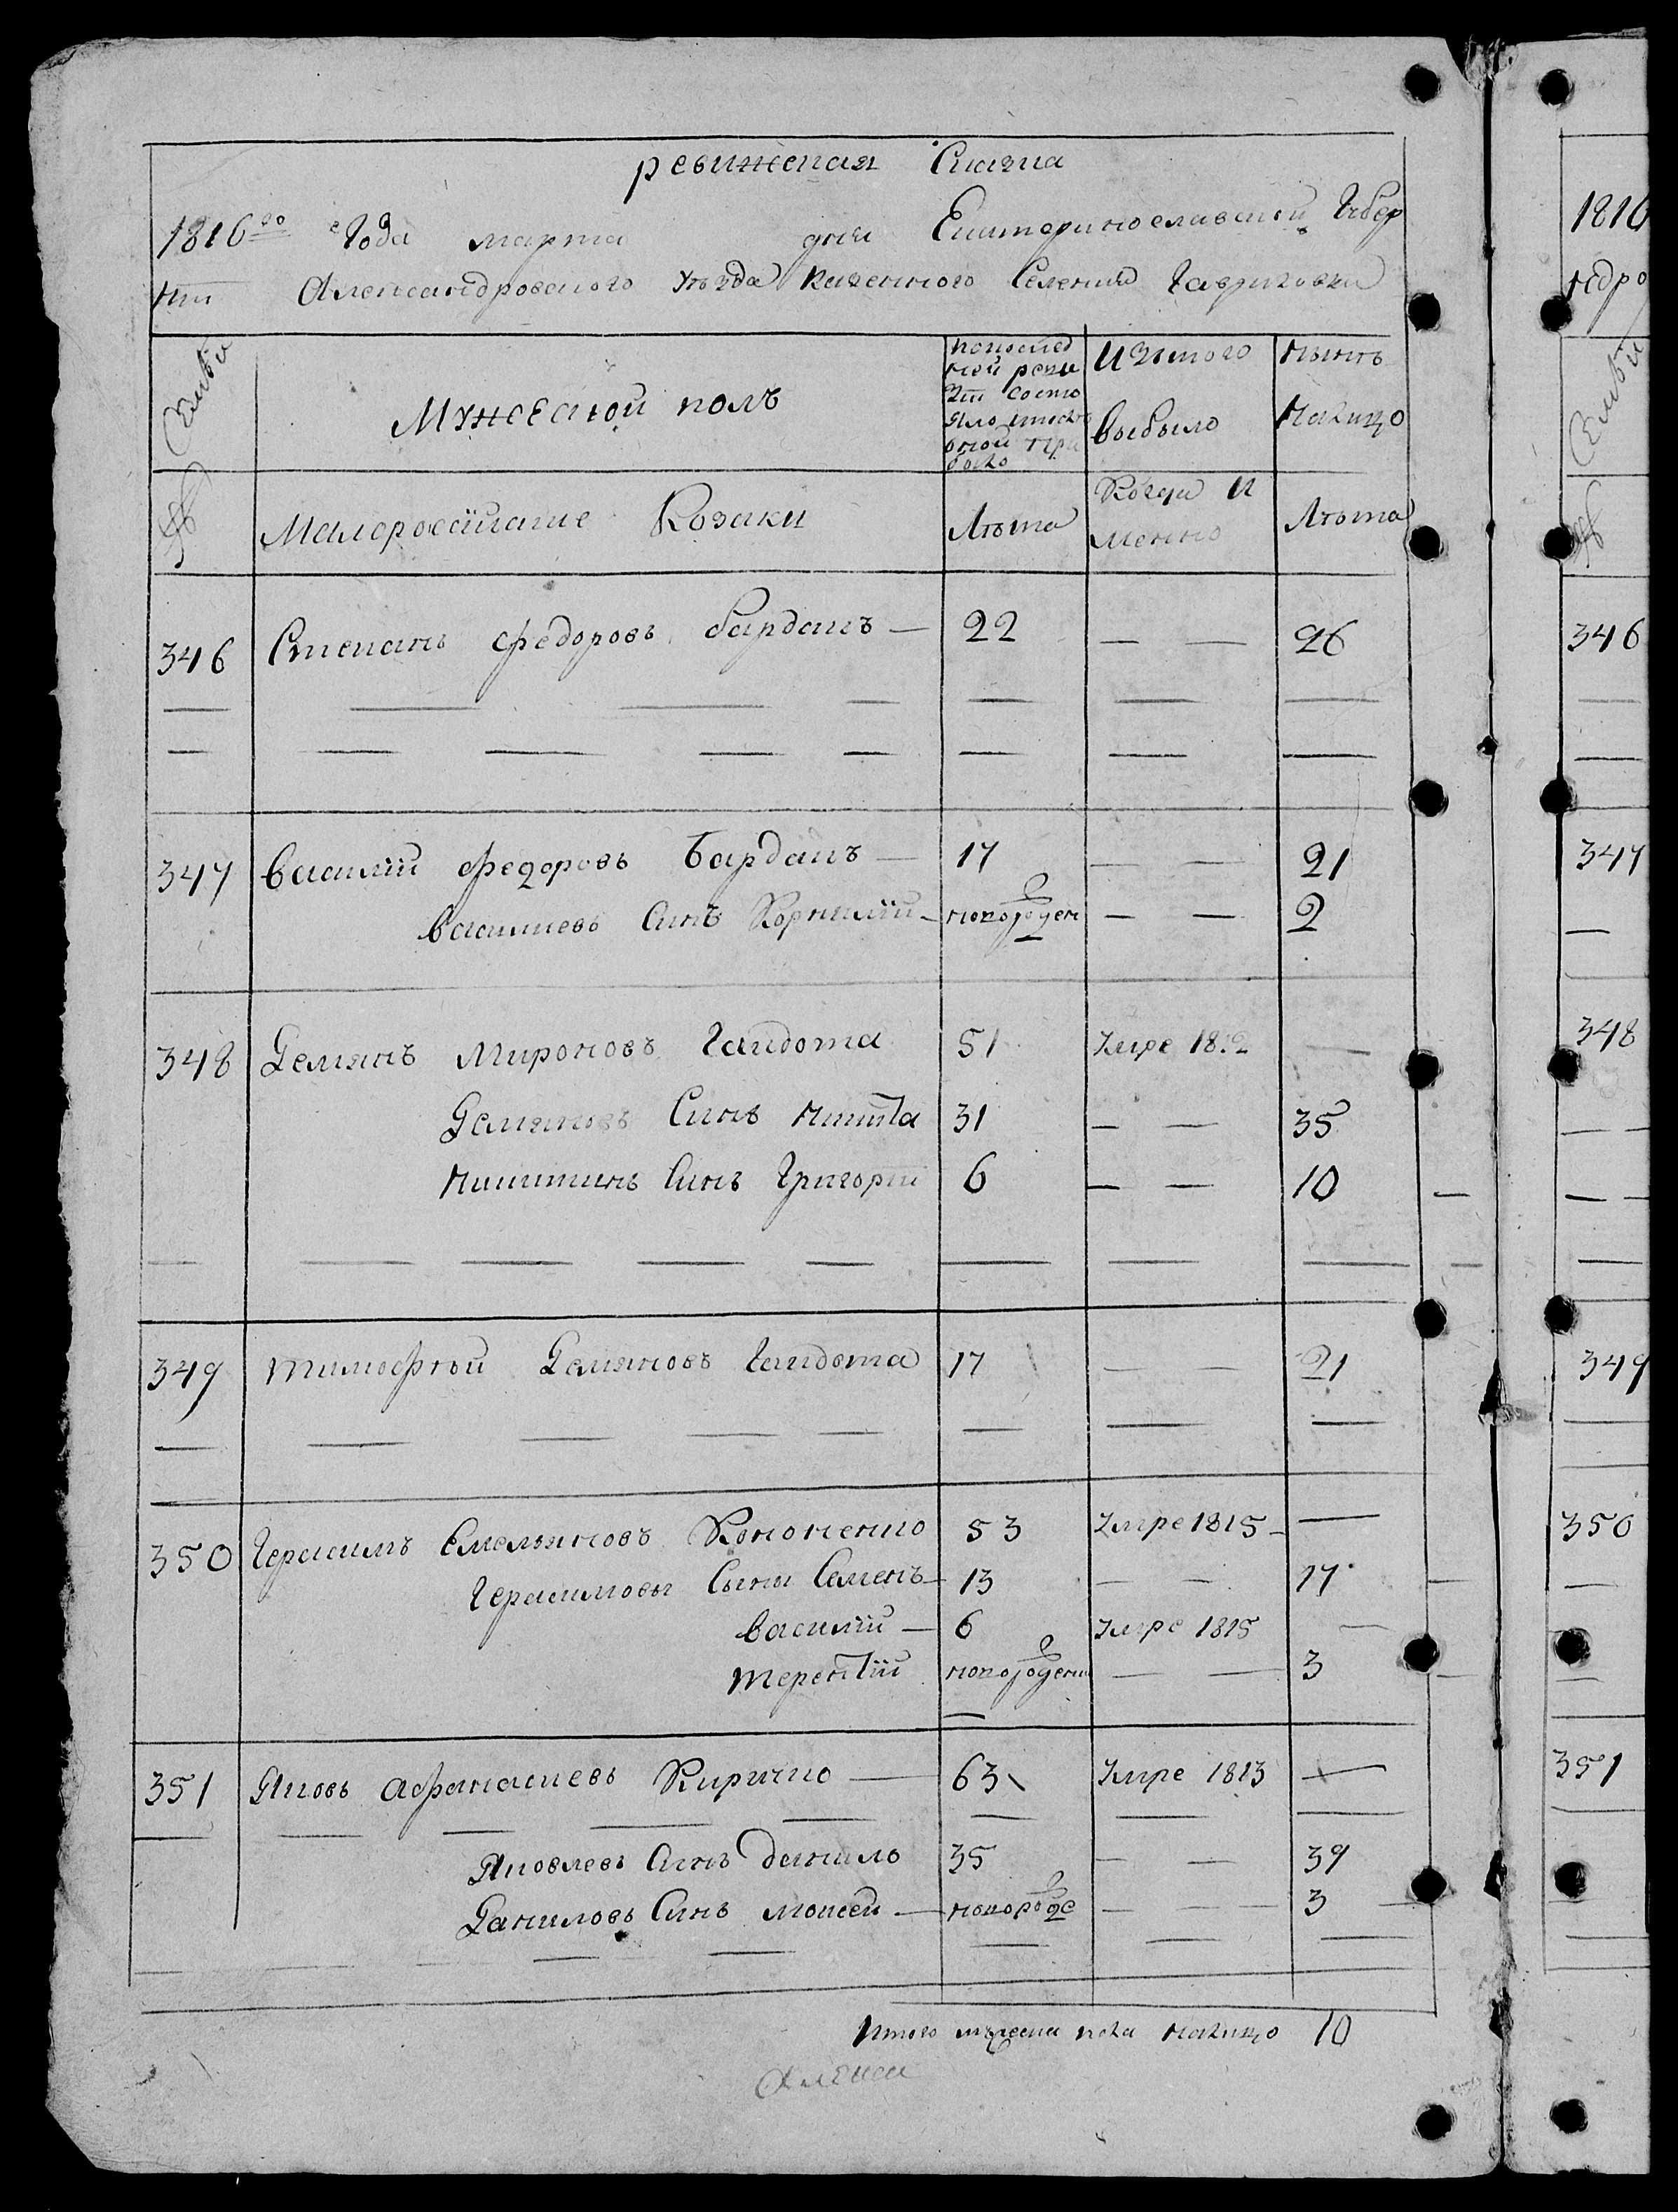 ревижская Сказка
1816го Года марта дня Екатеринославской Губер
нии Александровского уезда Казенного Селения Гавриловки
Семьи
Мужеской полъ
попослед
ней реви
зіи состо
яло
Изтого
выбыло
нынѣ
налицо
№
Малоросійские Козаки
Лѣта
Когда И
менно
Лѣта
346 Степанъ Федоровъ Барданъ — 22 — — 26
347 Василій Федоровъ Барданъ — 17 — — 21
Василиевъ Синъ Корнилій — новорожден — — 2
348 Демянъ Мироновъ Гайдота 51 Умре 1812 —
Демяновъ Синъ Никита 31 — — 35
Никитинъ Синъ Григорій 6 — — 10
349 Тимофѣй Демяновъ Гайдота 17 — — 21
350 Герасимъ Емельяновъ Кононенко 53 Умре 1815 —
Герасимовы Сыны Семенъ — 13 — — 17
Василій — 6 Умре 1815 —
Терентій новорожден — — 3
351 Яковъ Афанасиевъ Киричко — 63 Умре 1813 —
Яковлевъ Синъ Данило 35 — — 39
Даниловъ Синъ Моисей — новорожде — — 3
Итого мужеска пола налицо 10
1816
346
347
348
349
350
351